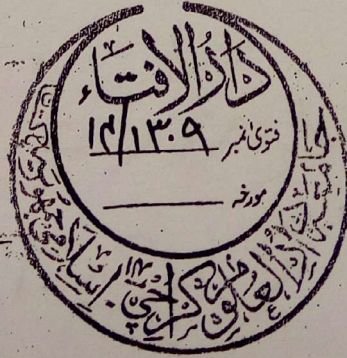 دارُالافتاء
فتویٰ نمبر ۱۴/۱۳۰۹
مورخہ
جامعہ دارالعلوم کراچی ۱۴ اسلامی جمہوریہ پاکستان